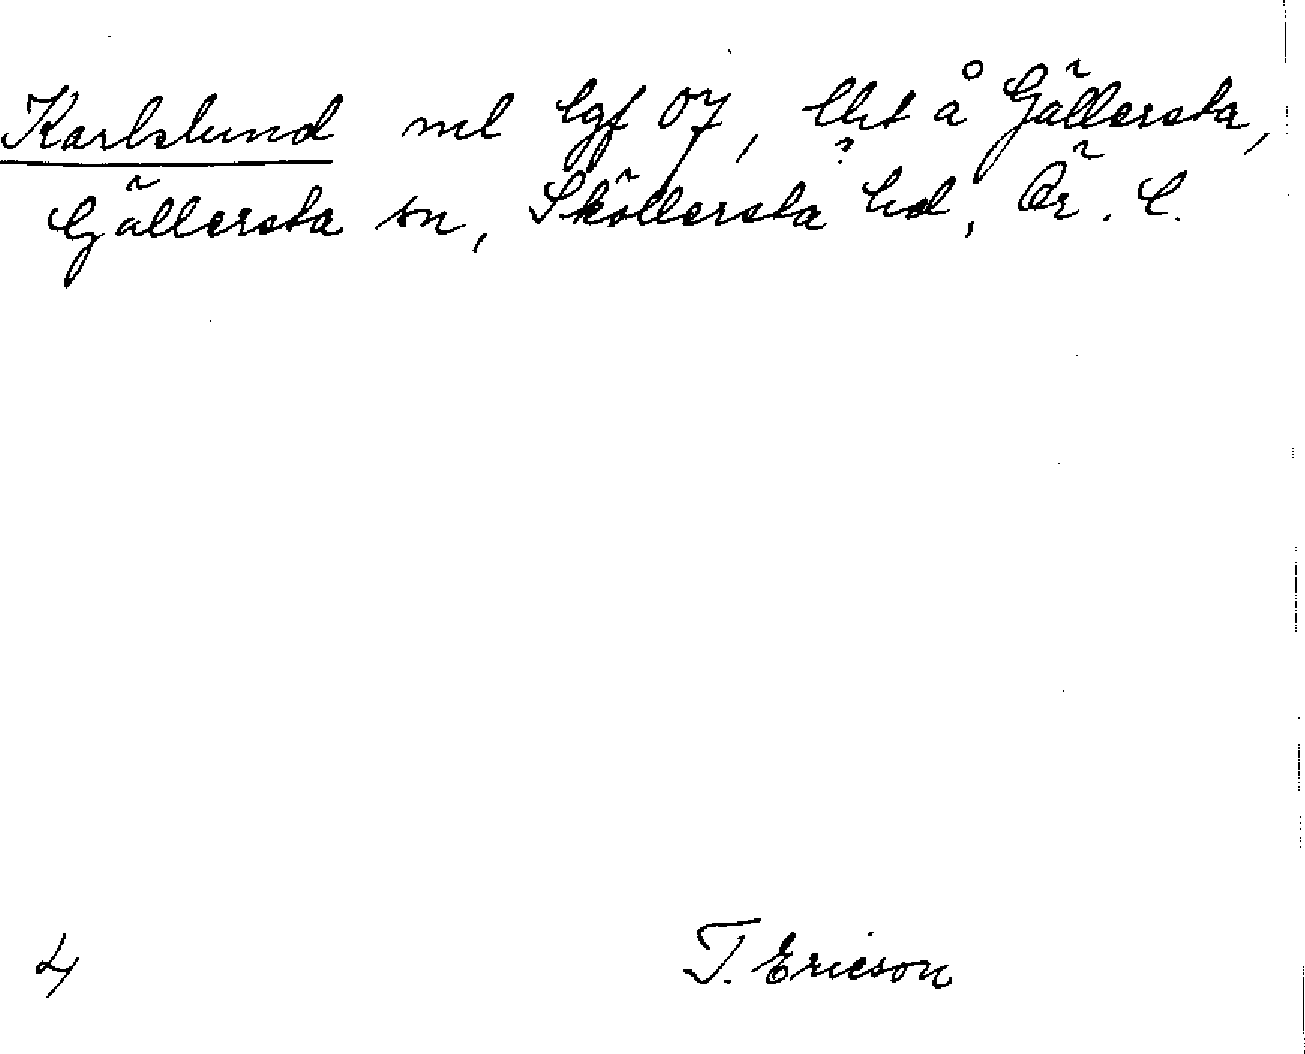 Karlslund nel lgf 07, lht å Gällersta,
Gällersta sn, Sköllersta hd, Ör. l.
4 T. Ericson